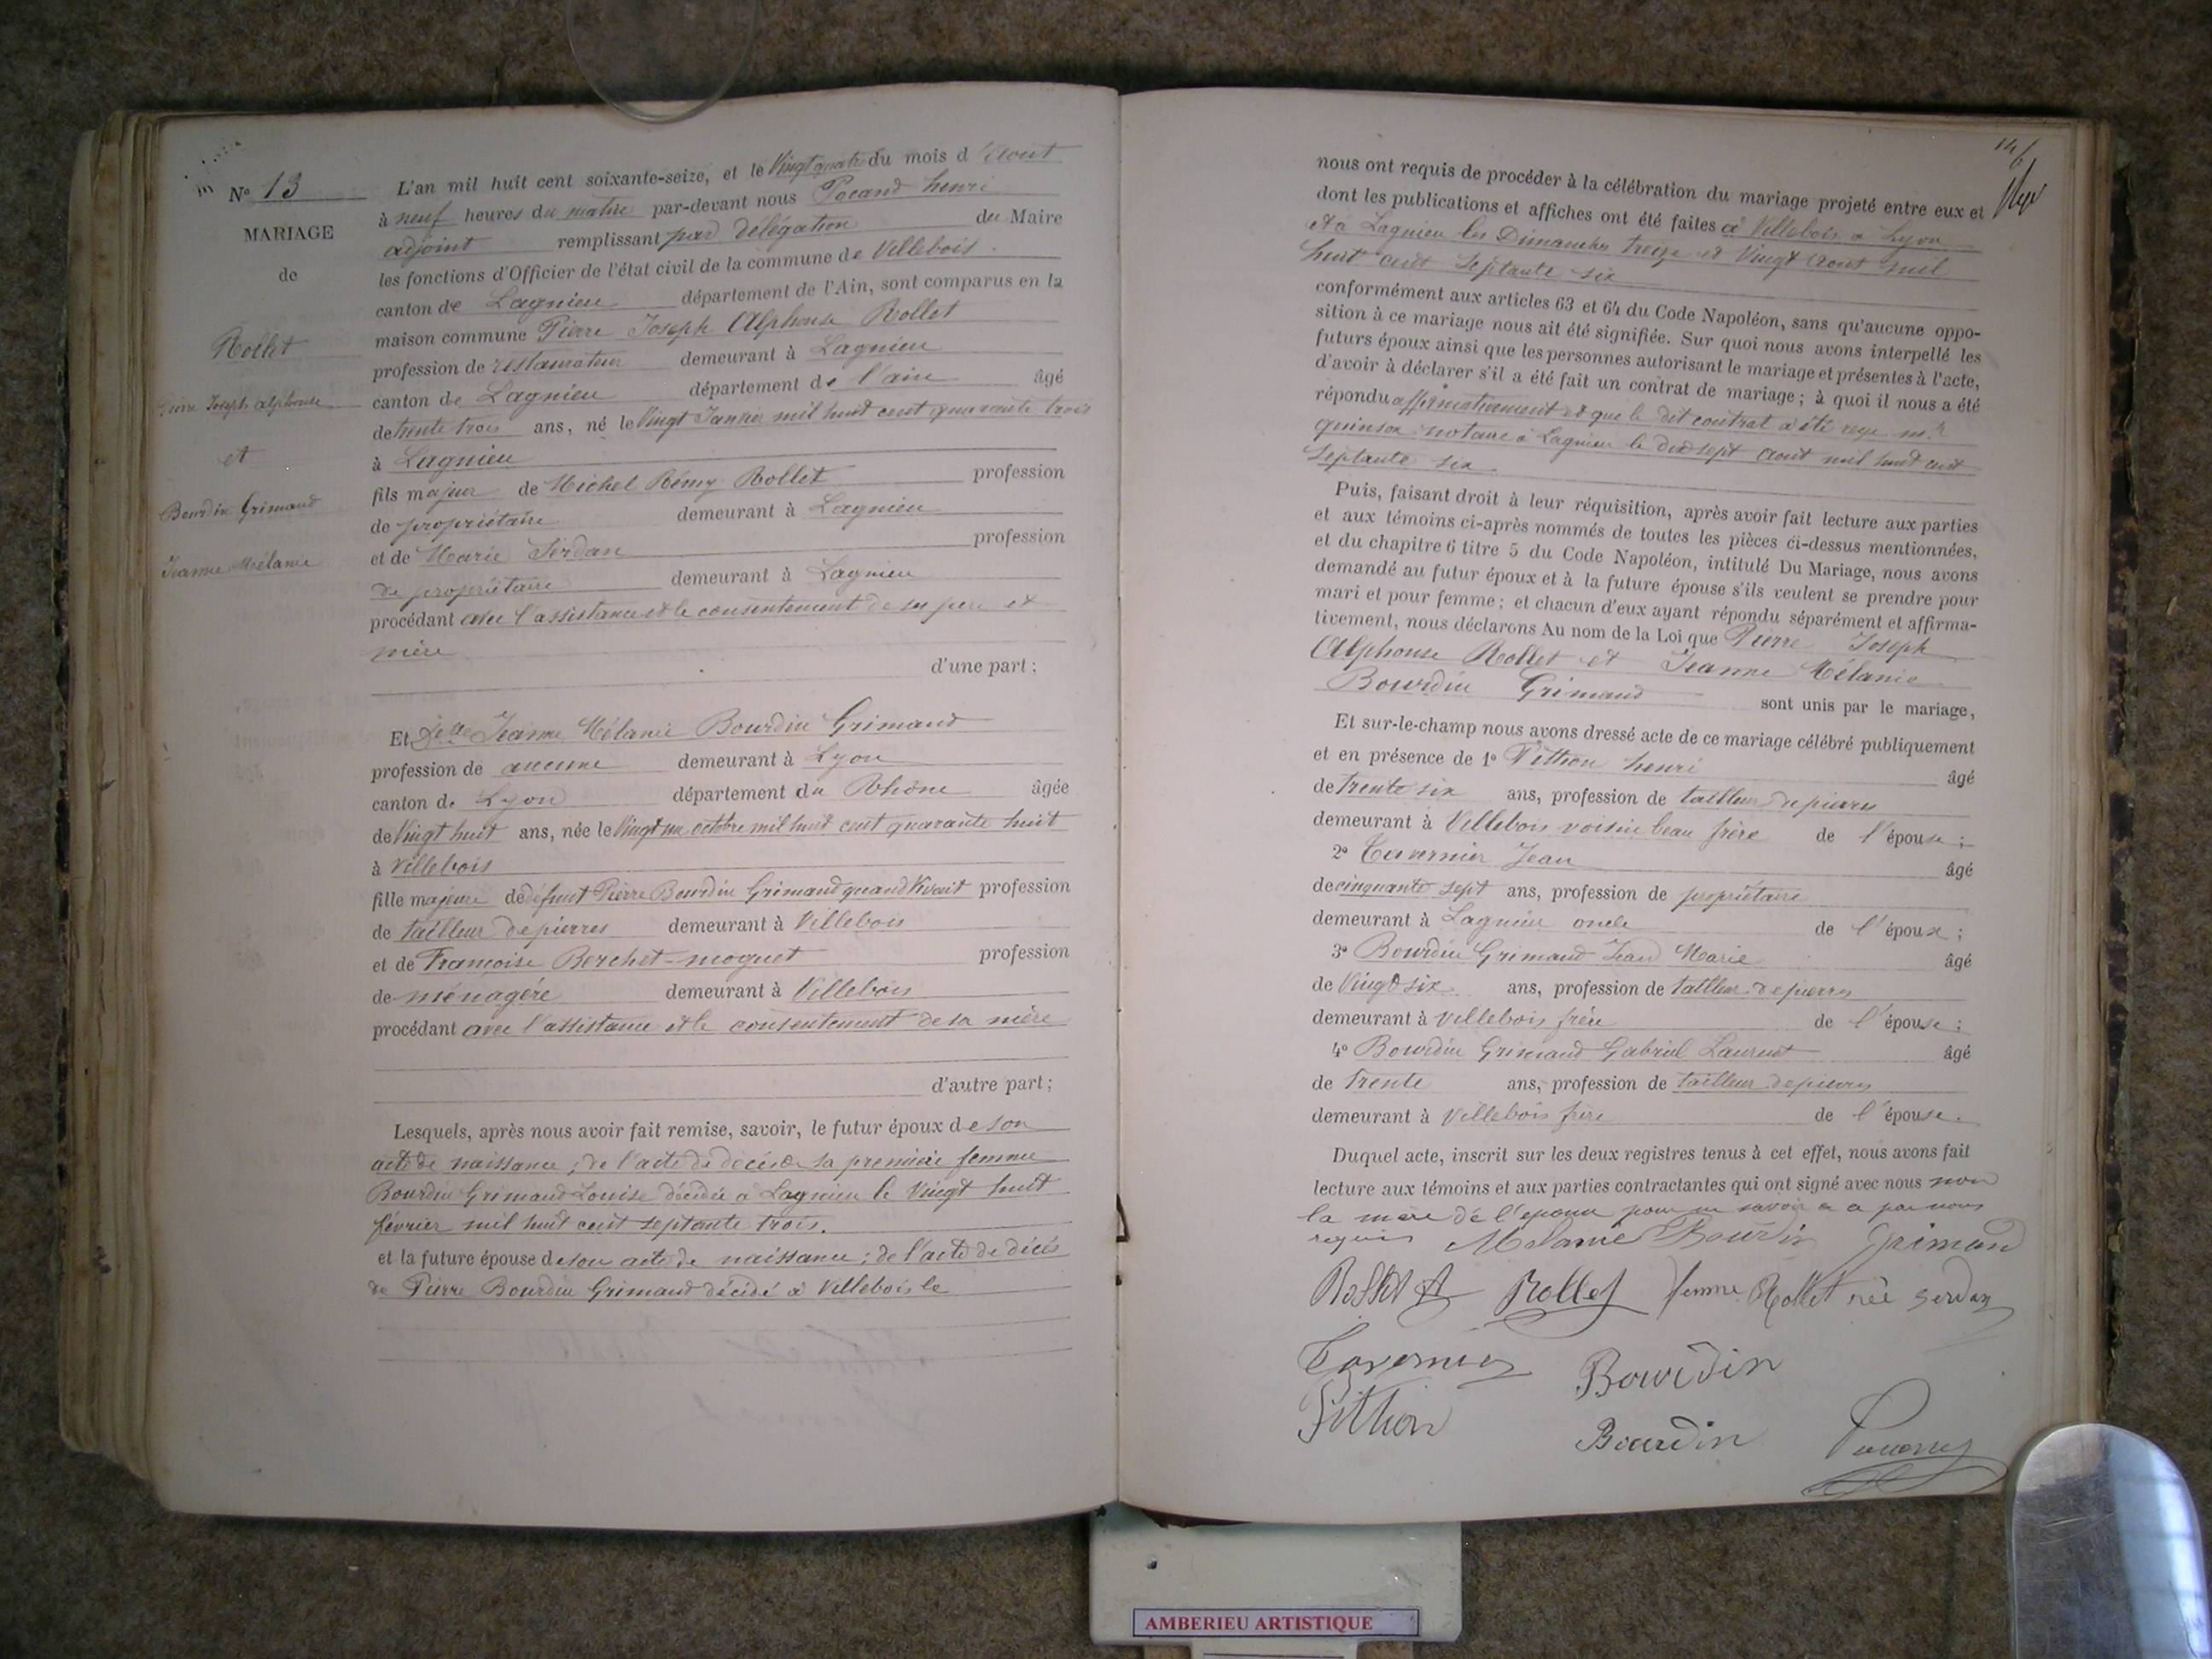 N° 13
MARIAGE
de
Rollet
Pierre Joseph Alphonse
et
Bourdin Grimaud
Jeanne Mélanie
L'an mil huit cent soixante-seize, et le Vingt quatre du mois d'Aout
à neuf heures du matin par-devant nous Pocand henri
adjoint remplissant par délégation du Maire
les fonctions d'Officier de l'état civil de la commune de Villebois.
canton de Lagnieu département de l'Ain, sont comparus en la
maison commune Pierre Joseph Alphonse Rollet
profession de restaurateur demeurant à Lagnieu
canton de Lagnieu département de l'ain âgé
de trente trois ans, né le Vingt Janvier mil huit cent quarante trois
à Lagnieu
fils majeur de Michel Rémy Rollet profession
de propriétaire demeurant à Lagnieu
et de Marie Serdan profession
de propriétaire demeurant à Lagnieu
procédant avec l'assistance et le consentement de ses pere et
mère
d'une part;
Et Delle Jeanne Mélanie Bourdin Grimaud
profession de aucune demeurant à Lyon
canton de Lyon département du Rhône âgée
de Vingt huit ans, née le Vingt un octobre mil huit cent quarante huit
à Villebois
fille majeure de défunt Pierre Bourdin Grimaud quand Vivait profession
de tailleur de pierres demeurant à Villebois
et de Françoise Berchet-moguet profession
de ménagère demeurant à Villebois
procédant avec l'assistance et le consentement de sa mère
d'autre part;
Lesquels, après nous avoir fait remise, savoir, le futur époux de son
acte de naissance; de l'acte de décès de sa première femme
Bourdin Grimaud Louise décédée à Lagnieu le Vingt huit
février mil huit cent septante trois.
et la future épouse de son acte de naissance; de l'acte de décès
de Pierre Bourdin Grimaud décédé à Villebois le
146
nous ont requis de procéder à la célébration du mariage projeté entre eux et
dont les publications et affiches ont été faites à Villebois a Lyon
et à Lagnieu les Dimanches treize et Vingt Aout mil
huit cent Septante six
conformément aux articles 63 et 64 du Code Napoléon, sans qu'aucune oppo-
sition à ce mariage nous ait été signifiée. Sur quoi nous avons interpellé les
futurs époux ainsi que les personnes autorisant le mariage et présentes à l'acte,
d'avoir à déclarer s'il a été fait un contrat de mariage; à quoi il nous a été
répondu affirmativement et que le dit contrat a été reçu mr
quinson notaire à Lagnieu le dix sept Aout mil huit cent
Septante six
Puis, faisant droit à leur réquisition, après avoir fait lecture aux parties
et aux témoins ci-après nommés de toutes les pièces ci-dessus mentionnées,
et du chapitre 6 titre 5 du Code Napoléon, intitulé Du Mariage, nous avons
demandé au futur époux et à la future épouse s'ils veulent se prendre pour
mari et pour femme; et chacun d'eux ayant répondu séparément et affirma-
tivement, nous déclarons Au nom de la Loi que Pierre Joseph
Alphonse Rollet et Jeanne Mélanie
Bourdin Grimaud sont unis par le mariage,
Et sur-le-champ nous avons dressé acte de ce mariage célébré publiquement
et en présence de 1° Pittion henri âgé
de trente six ans, profession de tailleur de pierres
demeurant à Villebois voisin beau frère de l'épouse;
2° Tavernier Jean âgé
de cinquante sept ans, profession de propriétaire
demeurant à Lagnieu oncle de l'époux;
3° Bourdin Grimaud Jean Marie âgé
de Vingt six ans, profession de tailleur de pierres
demeurant à Villebois frère de l'épouse;
4° Bourdin Grimaud Gabriel Laurent âgé
de Trente ans, profession de tailleur de pierres
demeurant à Villebois frère de l'épouse.
Duquel acte, inscrit sur les deux registres tenus à cet effet, nous avons fait
lecture aux témoins et aux parties contractantes qui ont signé avec nous non
la mère de l'épouse pour ne savoir de ce par nous
requis Mélanie Bourdin Grimaud
Rollet A Rollet femme Rollet née Serdan
Tavernier Bourdin
Pittion Bourdin
AMBERIEU ARTISTIQUE